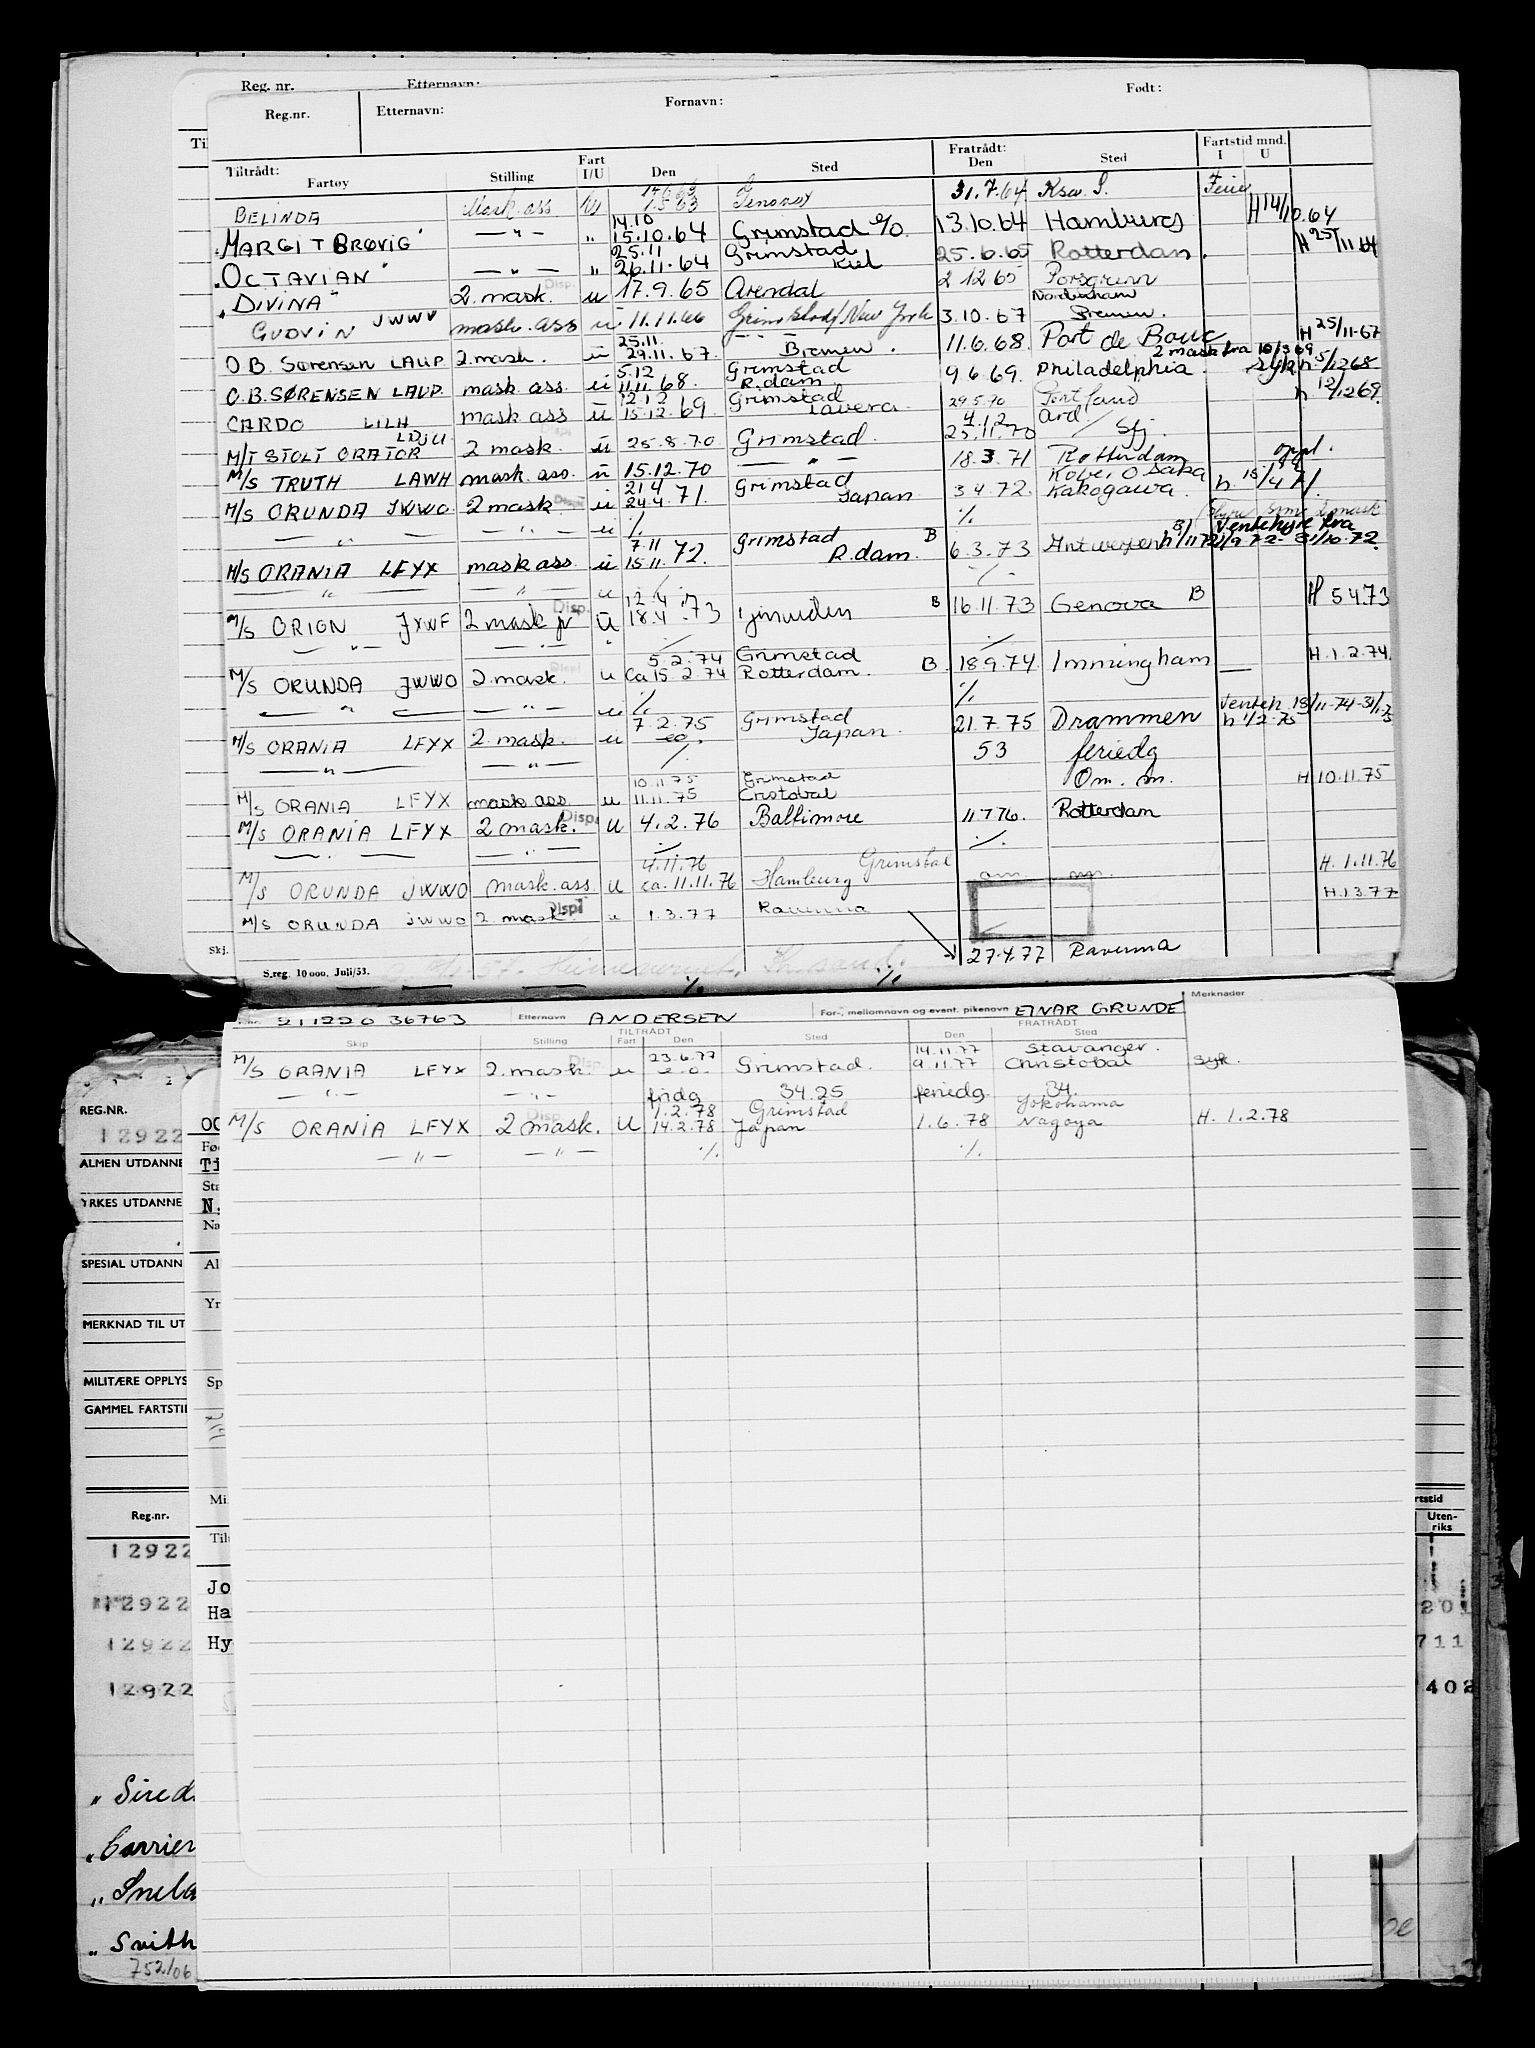 Reg. nr. Etternavn:
Reg.nr. Etternavn: Fornavn: Født:
Tiltrådt: Fartøy Stilling Fart I/U Den Sted Fratrådt: Den Sted Fartstid mnd. I U
BELINDA Mask. ass 31.7.64 Ksa. S. Ferie
14.10 H 14/10.64
"MARGIT BRØVIG" — " — " 15.10.64 Grimstad 13.10.64 Hamburg
25.11 Grimstad H 25/11 64
"OCTAVIAN" — " — " 26.11.64 Kiel 25.6.65 Rotterdam.
"DIVINA" 2. mask. u 17.9.65 Arendal 2 12 65 Porsgrunn
Nordenham
GUDVIN JWWV mask. ass u 11.11.66 Grimstad/New York 3.10.67 Bremen.
25.11. — — — H 25/11-67
O.B. Sørensen LAUP 2. mask. u 29.11.67. Bremen. 11.6.68. Port de Bouc
5.12 Grimstad 2 mask fra 10/3 69
O.B. SØRENSEN LAUP mask ass. u 11.11 68. R.dam. 9 6.69. Philadelphia. syk h. 5/12 68
12 12 Grimstad h 12/12 69.
CARDO LILH mask ass u 15.12.69 Tavera. 29.5.70 Portland
4.12 ard.
M/T STOLT ORATOR LDJU 2 mask. u 25.8.70 Grimstad. 25.11.70 / Sfj.
M/S TRUTH LAWH mask ass. u 15.12.70 — " — 18.3.71 Rotterdam
21 4 Grimstad Kobe, Osaka
M/S ORUNDA JWWO 2 mask Disp! u 24.4.71. Japan 3 4 72. Kakogawa. h. 15/4 71.
— " — — " — u ./. ./.
7.11 Grimstad B Ventehyre fra
M/S ORANIA LFYX mask ass. u 15.11.72. R.dam. 6.3.73 Antwerpen h 1/11 72 1/9 72 - 31/10-72.
— " — — " — u ./.
12.4
M/S ORION JXWF 2 mask jr Disp. u 18.4.73 Ijmuiden B 16.11.73 Genova B H 5 4.73
— " — — " — " ./. ./.
5.2.74 Grimstad H. 1.2.74.
M/S ORUNDA JWWO 2 mask. Disp! u Ca 15.2.74 Rotterdam. B. 18.9.74. Immingham
— " — — " — u ./. ./.
7.2.75 Grimstad Venteh. 18/11-74-31/1.75
M/S ORANIA LFYX 2 mask. u Japan. 21.7.75 Drammen h 1/2 75
— " — — " — ./. 53 feriedg
10.11.75 Grimstad Om. m. H 10.11.75
M/S ORANIA LFYX mask ass u 11.11.75 Cristobal
M/S ORANIA LFYX 2 mask. Disp. u 4.2.76 Baltimore 11.7.76. Rotterdam
— " — ./. ./.
4.11.76 Grimstad H. 1.11.76
M/S ORUNDA JWWO mask. ass. u ca. 11.11.76 Hamburg om m.
M/S ORUNDA JWWO 2 mask. Disp! u 1.3.77 Ravenna H.1.3.77
27.4.77 Ravenna
Skj.
S.reg. 10 000. Juli/53.
./. ./.
211220 36763 Etternavn ANDERSEN For-, mellomnavn og event. pikenavn EINAR GRUNDE Merknader
TILTRÅDT FRATRÅDT
Skip Stilling Fart Den Sted Den Sted
23.6.77 14.11.77 Stavanger.
M/S ORANIA LFYX 2. mask. Disp. u e.o. Grimstad. 9.11.77 Christobal syk.
— " — — " — fridg 34.25 feriedg 34.
1.2.78 Grimstad Yokohama
M/S ORANIA LFYX 2 mask. Disp. U 14.2.78 Japan 1.6.78 Nagoya H. 1.2.78
— " — — " — ./. ./.
REG.NR.
12922
ALMEN UTDANNE
YRKES UTDANNE
SPESIAL UTDANN
MERKNAD TIL UT
MILITÆRE OPPLYS
GAMMEL FARTSTI
Ti
Sta
N.
Na
Al
Yr
Sp
Mi
Reg.nr.
12922
12922
12922
12922
Jo
Ha
Hy
rtstid
Uten-
riks
201
711
402
"Sired
"Carrier
"Snela
"Svith
752/06